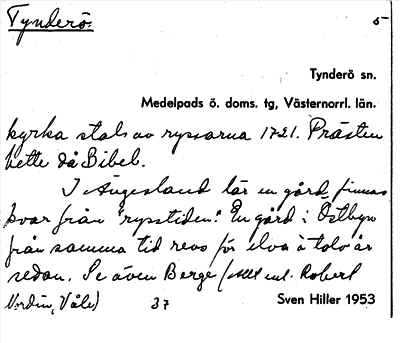 Tynderö.
5-
Tynderö sn.
Medelpads ö. doms. tg, Västernorrl. län.
kyrka stals av ryssarna 1721. Prästen
hette då Bibel.
I Åvgesland lär en gård finnas
kvar från "rysstiden". En gård i Östbyn
från samma tid revs för elva à tolv år
sedan. Se även Berge (Medd. Robert
Nordin, Våle) 37
Sven Hiller 1953